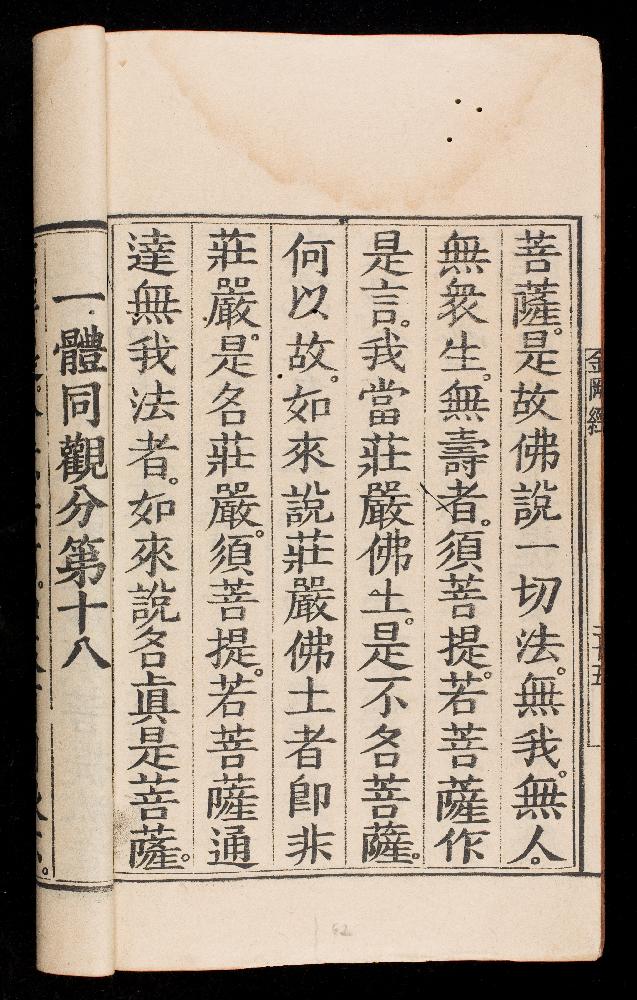 金剛經
二十五
菩薩。是故佛說一切法。無我。無人。
無衆生。無壽者。須菩提。若菩薩作
是言。我當莊嚴佛土。是不名菩薩。
何以故。如來說莊嚴佛土者即非
莊嚴。是名莊嚴。須菩提。若菩薩通
達無我法者。如來說名眞是菩薩。
一體同觀分第十八
62